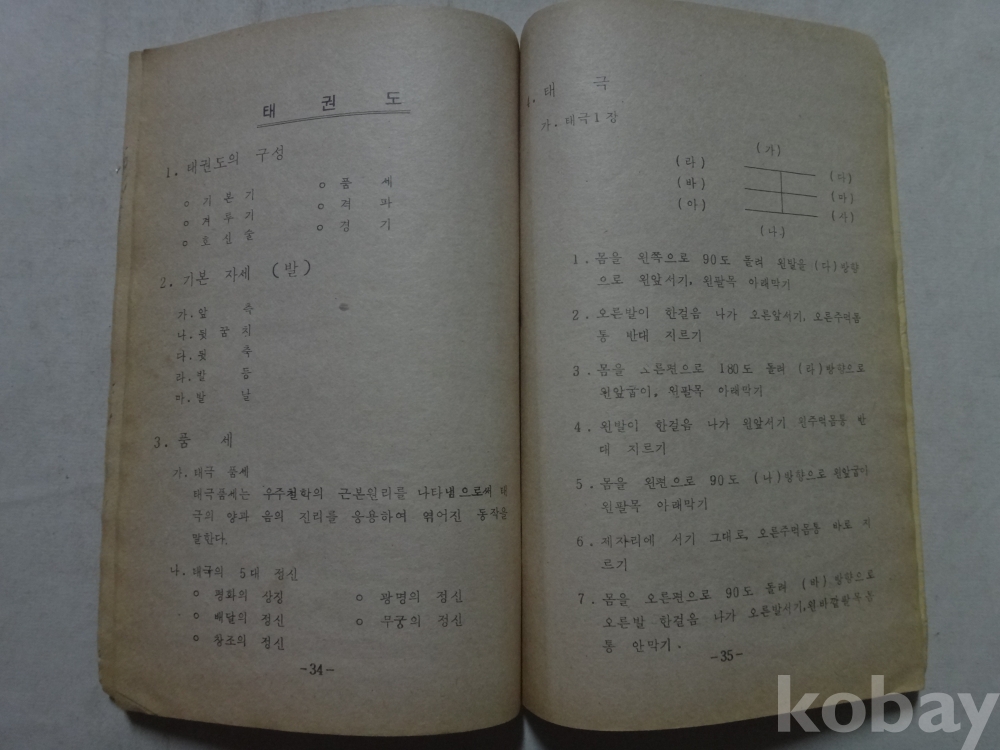 태 권 도
1. 태권도의 구성
o 기 본 기
o 겨 루 기
o 호 신 술
o 품 세
o 격 파
o 경 기
2. 기본 자세 (발)
가. 앞 축
나. 뒷 꿈 치
다. 뒷 축
라. 발 등
마. 발 날
3. 품 세
가. 태극 품세
태극품세는 우주철학의 근본원리를 나타냄으로써 태
극의 양과 음의 진리를 응용하여 엮어진 동작을
말한다.
나. 태극의 5대 정신
o 평화의 상징
o 배달의 정신
o 창조의 정신
o 광명의 정신
o 무궁의 정신
-34-
4. 태 극
가. 태극1장
(가)
(라) (다)
(바) (마)
(아) (사)
(나)
1. 몸을 왼쪽으로 90도 돌려 왼발을 (다)방향
으로 왼앞서기, 왼팔목 아래막기
2. 오른발이 한걸음 나가 오른앞서기, 오른주먹몸
통 반대 지르기
3. 몸을 오른편으로 180도 돌려 (라)방향으로
왼앞굽이, 왼팔목 아래막기
4. 왼발이 한걸음 나가 왼앞서기 왼주먹몸통 반
대 지르기
5. 몸을 왼편으로 90도 (나)방향으로 왼앞굽이
왼팔목 아래막기
6. 제자리에 서기 그대로, 오른주먹몸통 바로 지
르기
7. 몸을 오른편으로 90도 돌려 (바)방향으로
오른발 한걸음 나가 오른앞서기,
통 안막기.
-35-
kobay